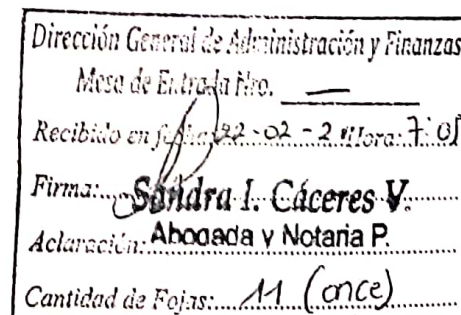 Dirección General de Administración y Finanzas
Mesa de Entrada Nro.
Recibido en fecha: 22-02-2 Hora: 7:05
Firma: Sandra I. Cáceres V.
Aclaración: Abogada y Notaria P.
Cantidad de Fojas: 11 (once)